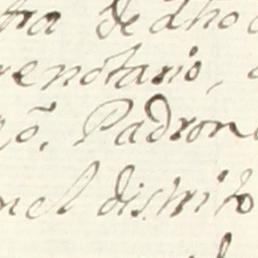 tra de dho
renotario,
ro. Padron
nel distrito